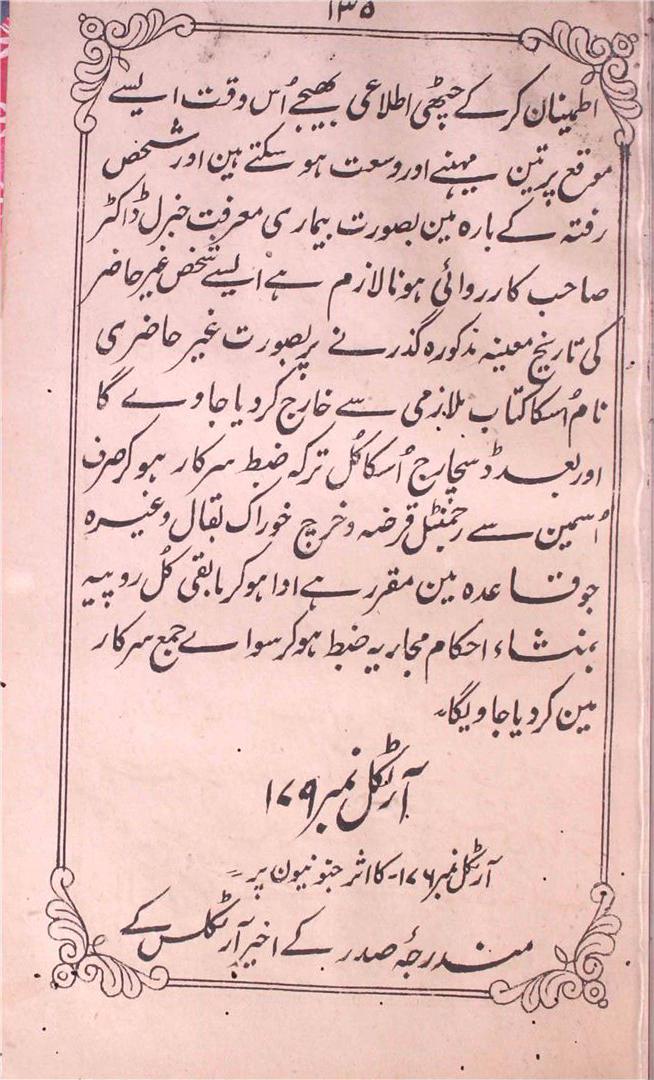 ۱۳۵
اطمینان کر کے چٹھی اطلاعی بھیجے اُس وقت ایسے
موقع پر تین مہینے اور وسعت ہو سکتے ہین اور شخص
رفتہ کے بارہ مین بصورت بیماری معرفت جنرل ڈاکٹر
صاحب کارروائی ہونا لازم ہے ایسے شخص غیر حاضر
کی تاریخ معینہ مذکورہ گذرنے پر بصورت غیر حاضری
نام اُسکا کتاب ملازمی سے خارج کر دیا جاوے گا
اور بعد ڈسچارج اُسکا کُل ترکہ ضبط سرکار ہو کر صرف
اُسمین سے رجمنٹل قرضہ و خرچ خوراک بقال وغیرہ
جو قاعدہ مین مقرر ہے ادا ہو کر مابقی کُل روپیہ
بمنشاء احکام مجاریہ ضبط ہو کر سواے جمع سرکار
مین کر دیا جاویگا۔
آرٹکل نمبر ۱۷۹
آرٹکل نمبر ۱۷۶۔ کا اثر جنونیون پر ۔
مندرجۂ صدر کے اخیر آرٹکلس کے